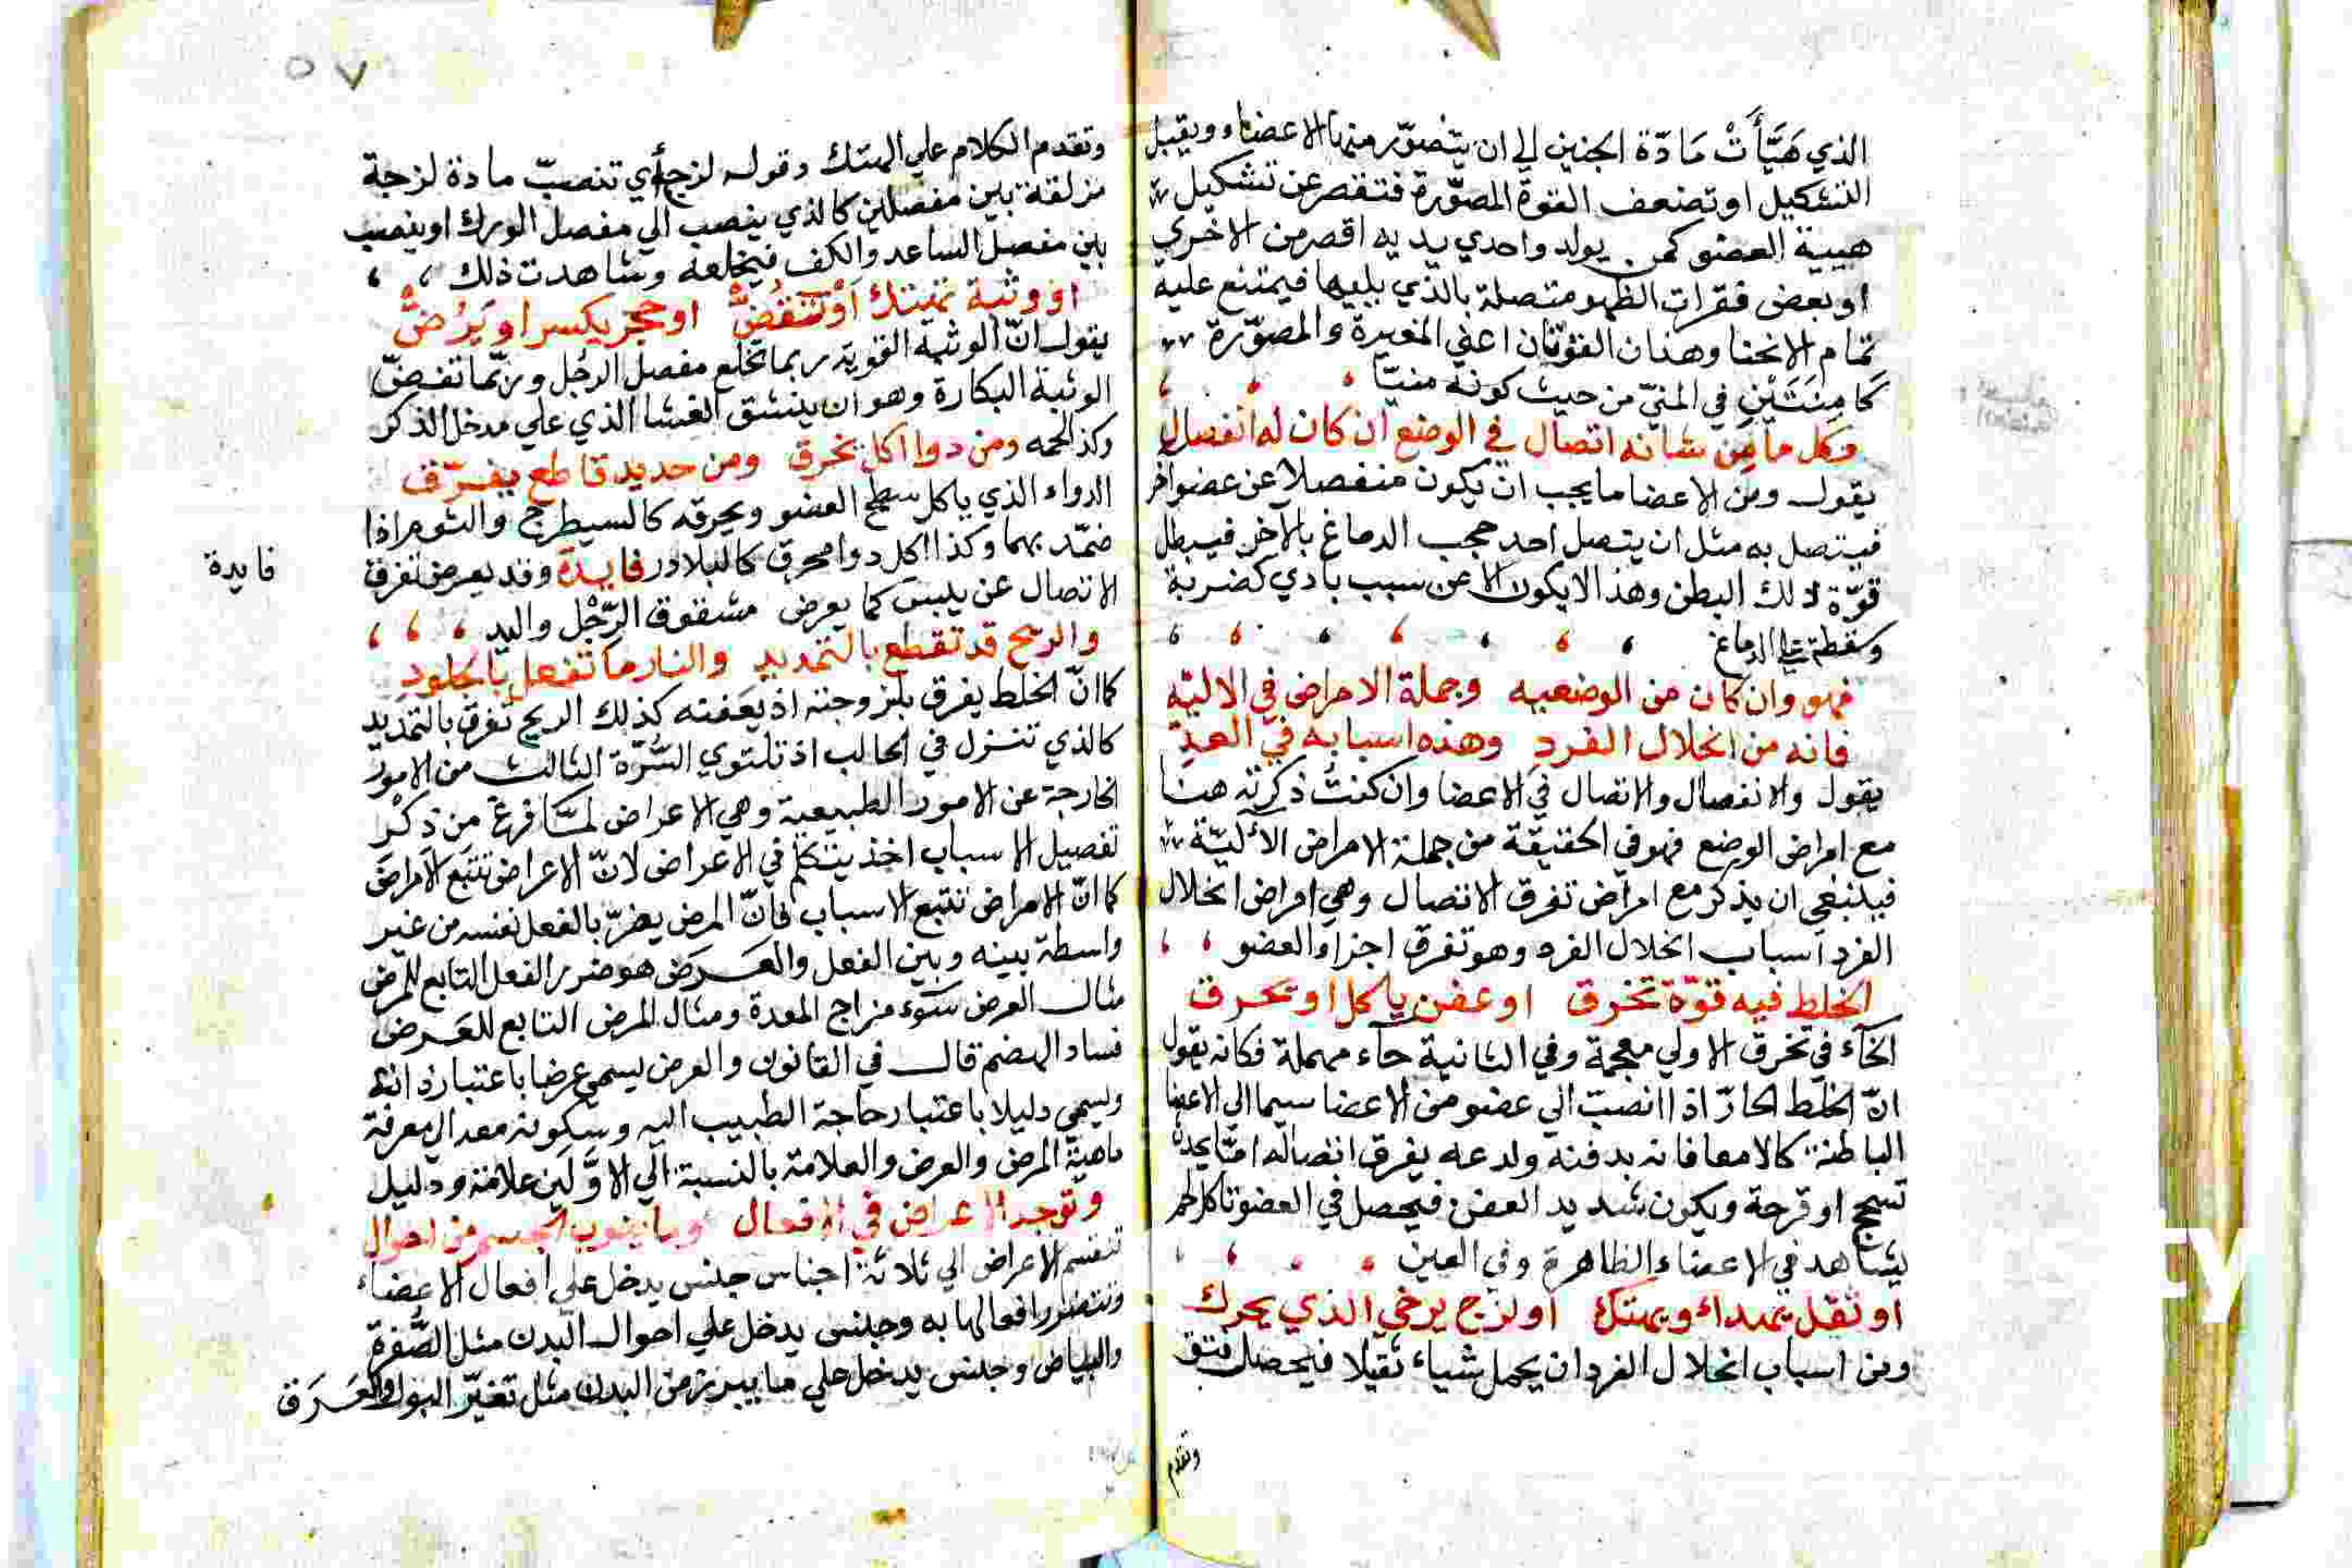 الذي هَيَّأَتْ مَادّة الجنين الي ان يتصوّر منها الاعضاء ويقبل
التشكيل او تضعف القوة المصوّرة فتقصر عن تشكيل
هيية العضو كمن يولد واحدي يديه اقصر من الاخري
او بعض فقرات الظهر متصلة بالذي يليها فيمتنع عليه
تمام الانحنا وهذان القوتان اعني المغيرة والمصوّرة
كامِنَتَيْنِ في المنيّ من حيث كونه منيّا
وكل ما من شانه اتصال في الوضع ان كان له انفصال
يقول ومن الاعضا ما يجب ان يكون منفصلا عن عضو اخر
فيتصل به مثل ان يتصل احد حجب الدماغ بالآخر فيبطل
قوّة ذلك البطن وهذا لا يكون الا عن سبب بادي كضربة
وسقطة علي الدماغ
فهو وان كان من الوضعيه وجملة الامراض في الاليّه
فانه من انحلال الفرد وهذه اسبابه في العدّ
يقول والانفصال والاتصال في الاعضا وان كنتُ ذكرته هنا
مع امراض الوضع فهو في الحقيقة من جملة الامراض الآليّة
فينبغي ان يذكر مع امراض تفرق الاتصال وهي امراض انحلال
الفرد اسباب انحلال الفرد وهو تفرق اجزاء العضو
الخلط فيه قوّة تخرق او عفن ياكل او تحرق
الخآء في تخرق الاولي معجمة وفي الثانية حآء مهملة فكانه يقول
انّ الخلط الحارّ اذا انصبّ الي عضو من الاعضا سيما الي الاعضا
الباطنة كالامعا فانه يدفنه ولدعه يفرق اتصاله امّا يحدث
تسحج او قرحة ويكون شديد العفن فيحصل في العضو تاكل كما
يشاهد في الاعضاء الظاهرة وفي العين
او ثقل يمتد او يهتك او لزج يرخي الذي يحرك
ومن اسباب انحلال الفرد ان يحمل شياء ثقيلا فيحصل فتق
وتقدم
٥٧
وتقدم الكلام علي الهتك وقوله لزج أي تنصبّ مادة لزجة
مزلقة بين مفصلين كالذي ينصب الي مفصل الورك او ينصب
بين مفصل الساعد والكف فيخلعه وشاهدت ذلك
او وثبة تهتك اوْ تَفُضُّ او حجر يكسر او يَرُضُّ
يقول انّ الوثبة القوية ربما تخلع مفصل الرجُل وربّما تفضّ
الوثبة البكارة وهو ان ينشق الغشا الذي علي مدخل الذكر
وكذا لحمه ومن دوا اكل يخرق ومن حديد قاطع يفرّق
الدواء الذي ياكل سطح العضو ويحرقه كالسيطرج والثوم اذا
ضمّد بهما وكذا اكل دوا محرق كالبلادر فايدة وقد يعرض تفرق
فايدة
الاتصال عن يبس كما يعرض مشقوق الرِّجْل واليد
والريح قد تقطع بالتمديد والنار ما تفعل بالجلود
كما انّ الخلط يفرق بلزوجته اذ يعفنه كذلك الريح تفرق بالتمديد
كالذي تنزل في الحالب اذ تلتوي السُّرّة الثالث من الامور
الخارجة عن الامور الطبيعية وهي الاعراض لمّا فرغ من ذِكْر
تفصيل الاسباب اخذ يتكلم في الاعراض لانّ الاعراض تتبع الامراض
كما انّ الامراض تتبع الاسباب فانّ المرض يضرّ بالفعل نفسه من غير
واسطة بينه وبين الفعل والعَرَض هو ضرر الفعل التابع للمرض
مثال العرض سوء مزاج المعدة ومثال المرض التابع للعَرض
فساد الهضم قال في القانون والعرض يسمي عرضا باعتبار ذاته
ويسمي دليلا باعتبار حاجة الطبيب اليه وسكونه معه الي معرفة
ماهية المرض والعرض والعلامة بالنسبة الي الاوَّلَين علامة ودليل
وتوجد الاعراض في الافعال وما ينوب الجسم من احوال
تنقسم الاعراض الي ثلاثة اجناس جنس يدخل علي افعال الاعضاء
وتتضرر افعالها به وجنس يدخل علي احوال البدن مثل الصُّفرة
والبياض وجنس يدخل علي ما يبرز من البدن مثل تغيّر البول والعَرَق